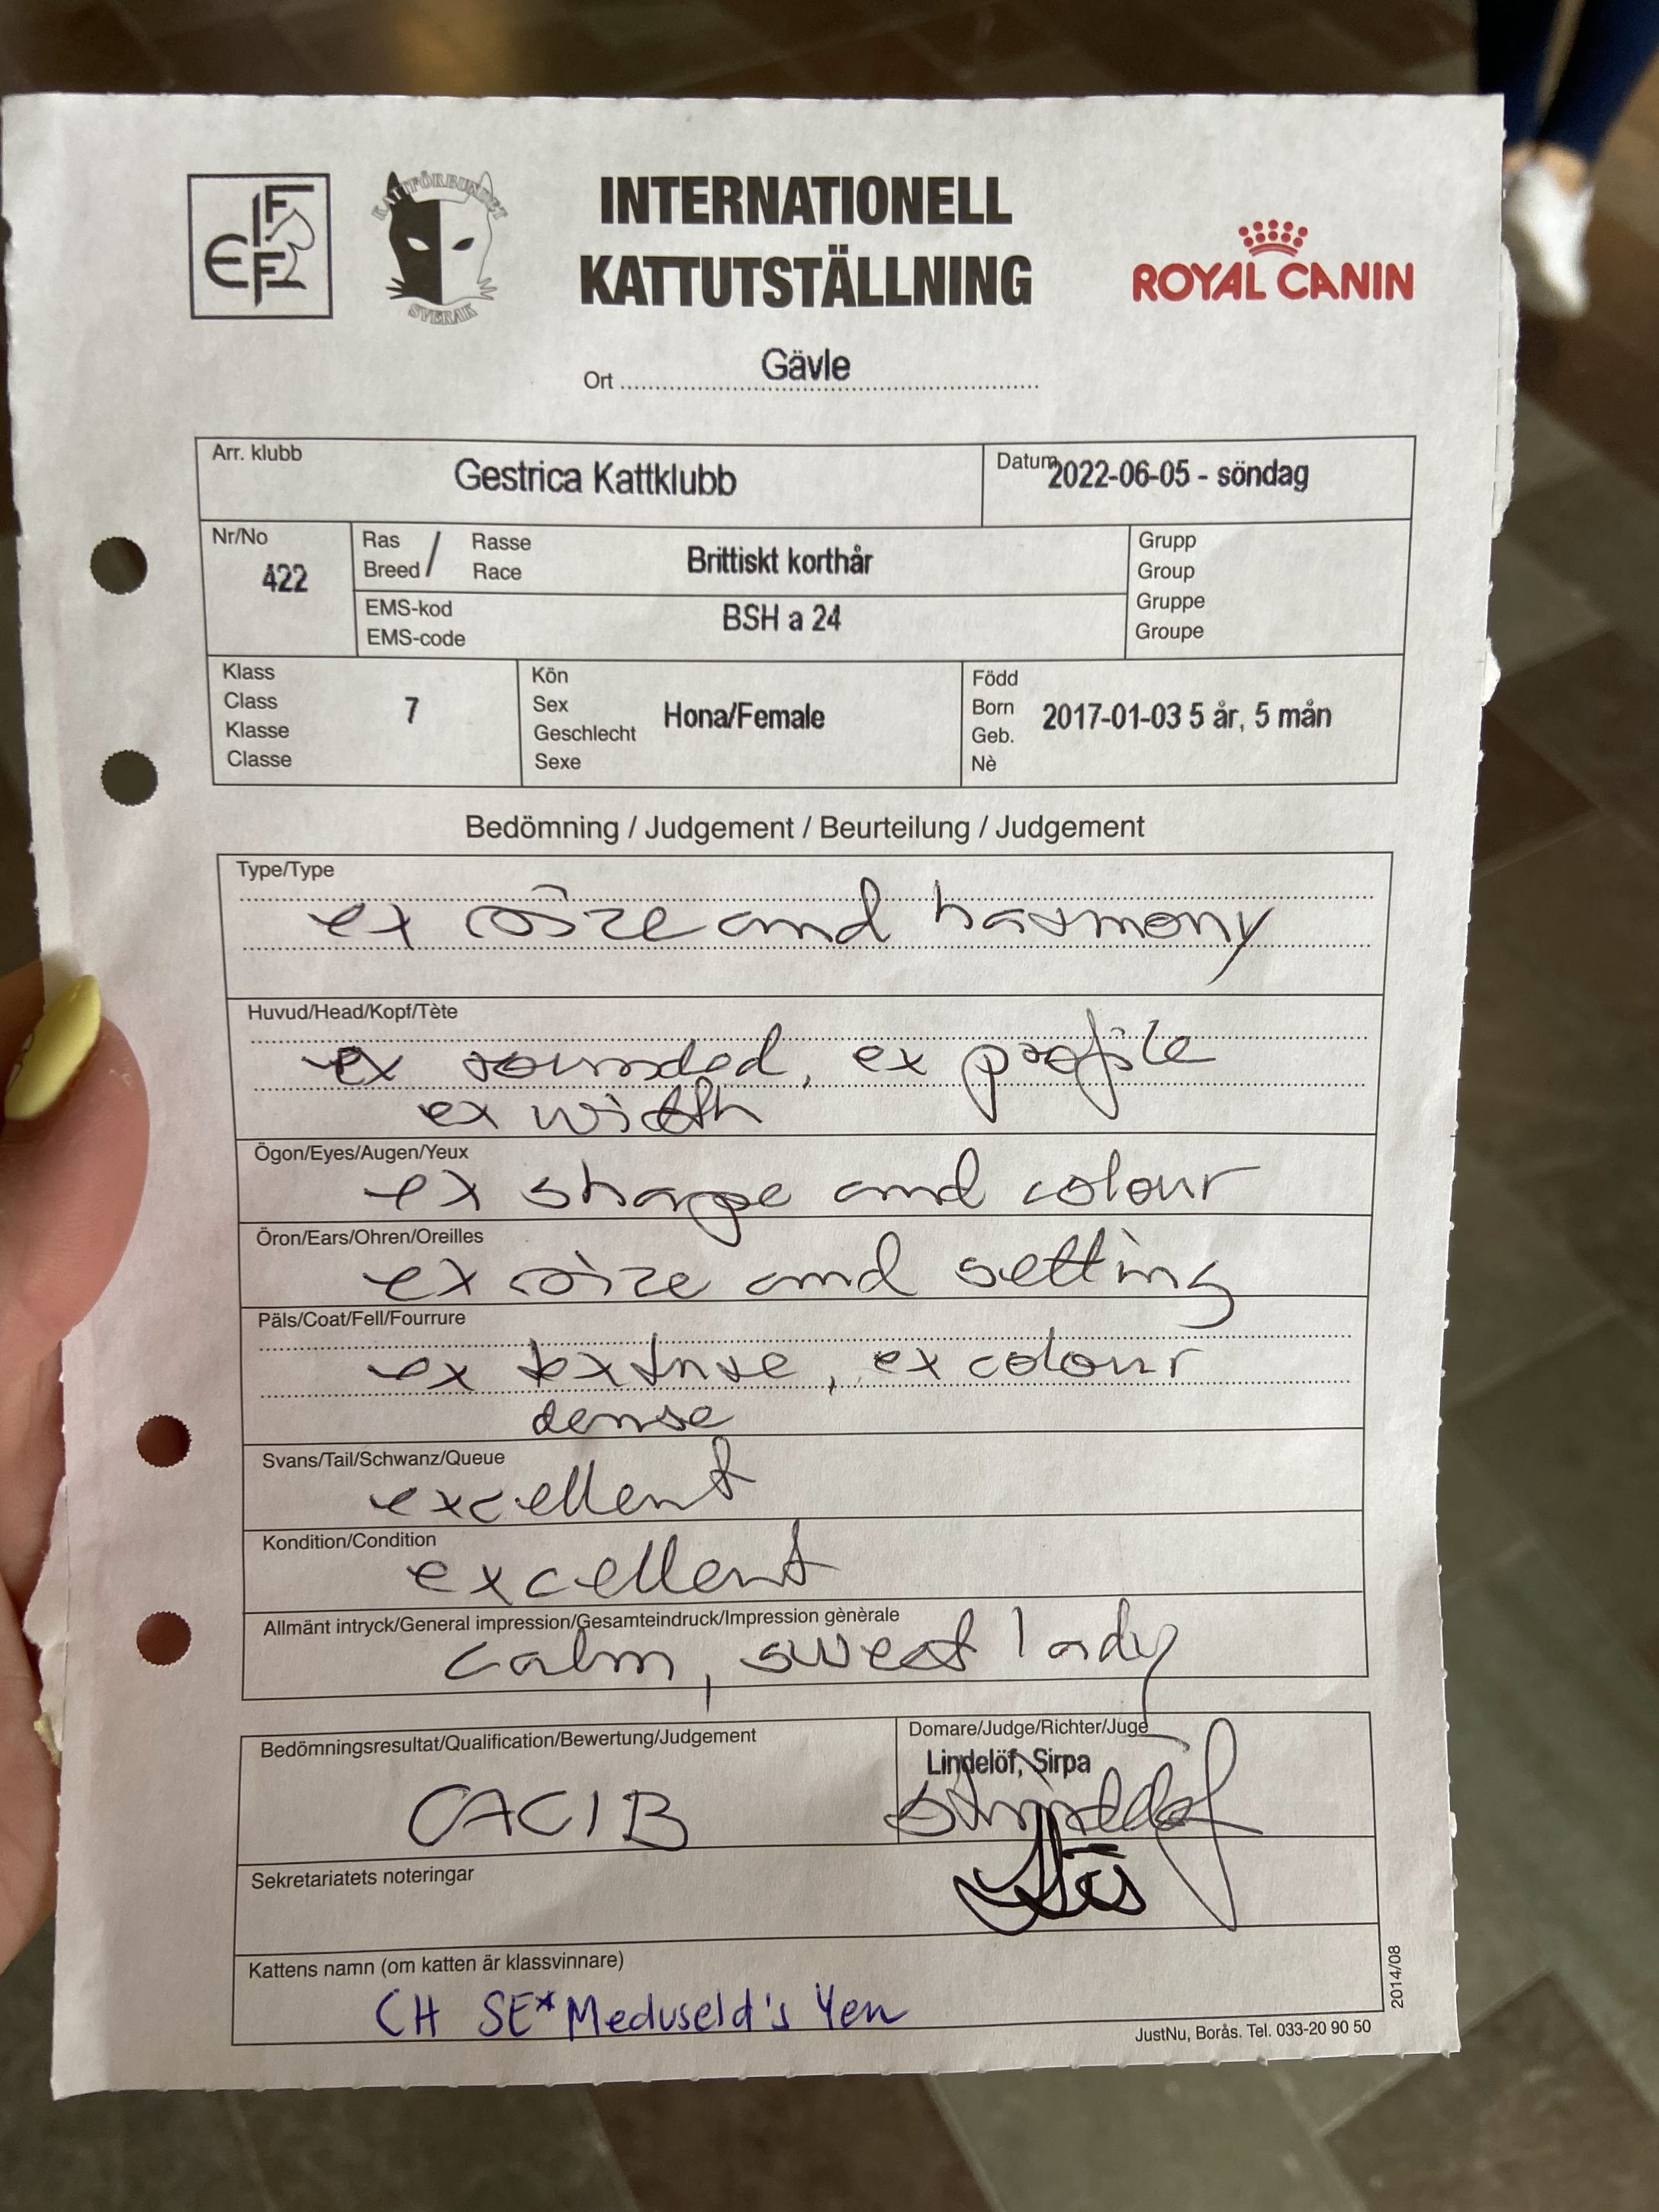 FIFE
KATTFÖRBUNDET
SVERAK
INTERNATIONELL
KATTUTSTÄLLNING
ROYAL CANIN
Ort Gävle
Arr. klubb
Gestrica Kattklubb
Datum 2022-06-05 - söndag
Nr/No
422
Ras / Rasse
Breed / Race
Brittiskt korthår
EMS-kod
EMS-code
BSH a 24
Grupp
Group
Gruppe
Groupe
Klass
Class
Klasse
Classe
7
Kön
Sex
Geschlecht
Sexe
Hona/Female
Född
Born
Geb.
Nè
2017-01-03 5 år, 5 mån
Bedömning / Judgement / Beurteilung / Judgement
Type/Type
ex size and harmony
Huvud/Head/Kopf/Tète
ex rounded, ex profile
ex width
Ögon/Eyes/Augen/Yeux
ex shape and colour
Öron/Ears/Ohren/Oreilles
ex size and setting
Päls/Coat/Fell/Fourrure
ex texture, ex colour
dense
Svans/Tail/Schwanz/Queue
excellent
Kondition/Condition
excellent
Allmänt intryck/General impression/Gesamteindruck/Impression gènèrale
calm, sweet lady
Bedömningsresultat/Qualification/Bewertung/Judgement
CACIB
Domare/Judge/Richter/Juge
Lindelöf, Sirpa
Sekretariatets noteringar
Kattens namn (om katten är klassvinnare)
CH SE*Meduseld's Yen
2014/08
JustNu, Borås. Tel. 033-20 90 50